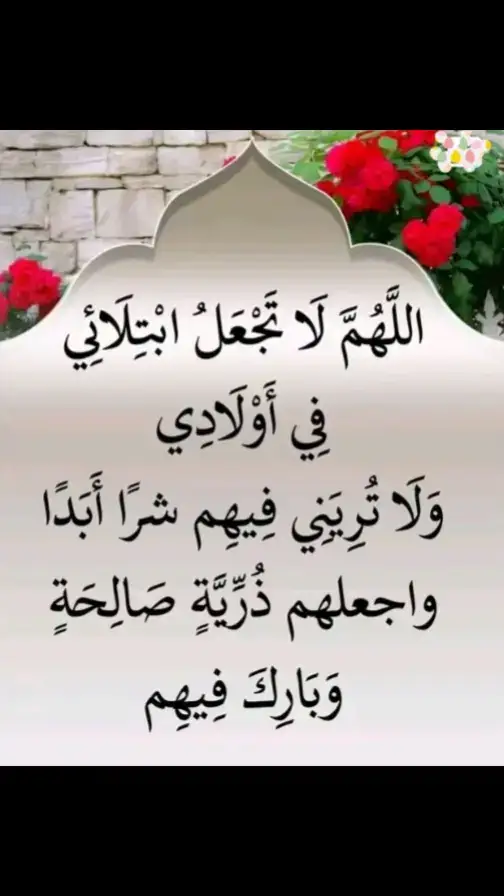 اللَّهُمَّ لَا تَجْعَلُ ابْتِلَائِي
فِي أَوْلَادِي
وَلَا تُرِيَنِي فِيهِم شرًا أَبَدًا
واجعلهم ذُرِّيَّةٍ صَالِحَةٍ
وَبَارِكَ فِيهِم